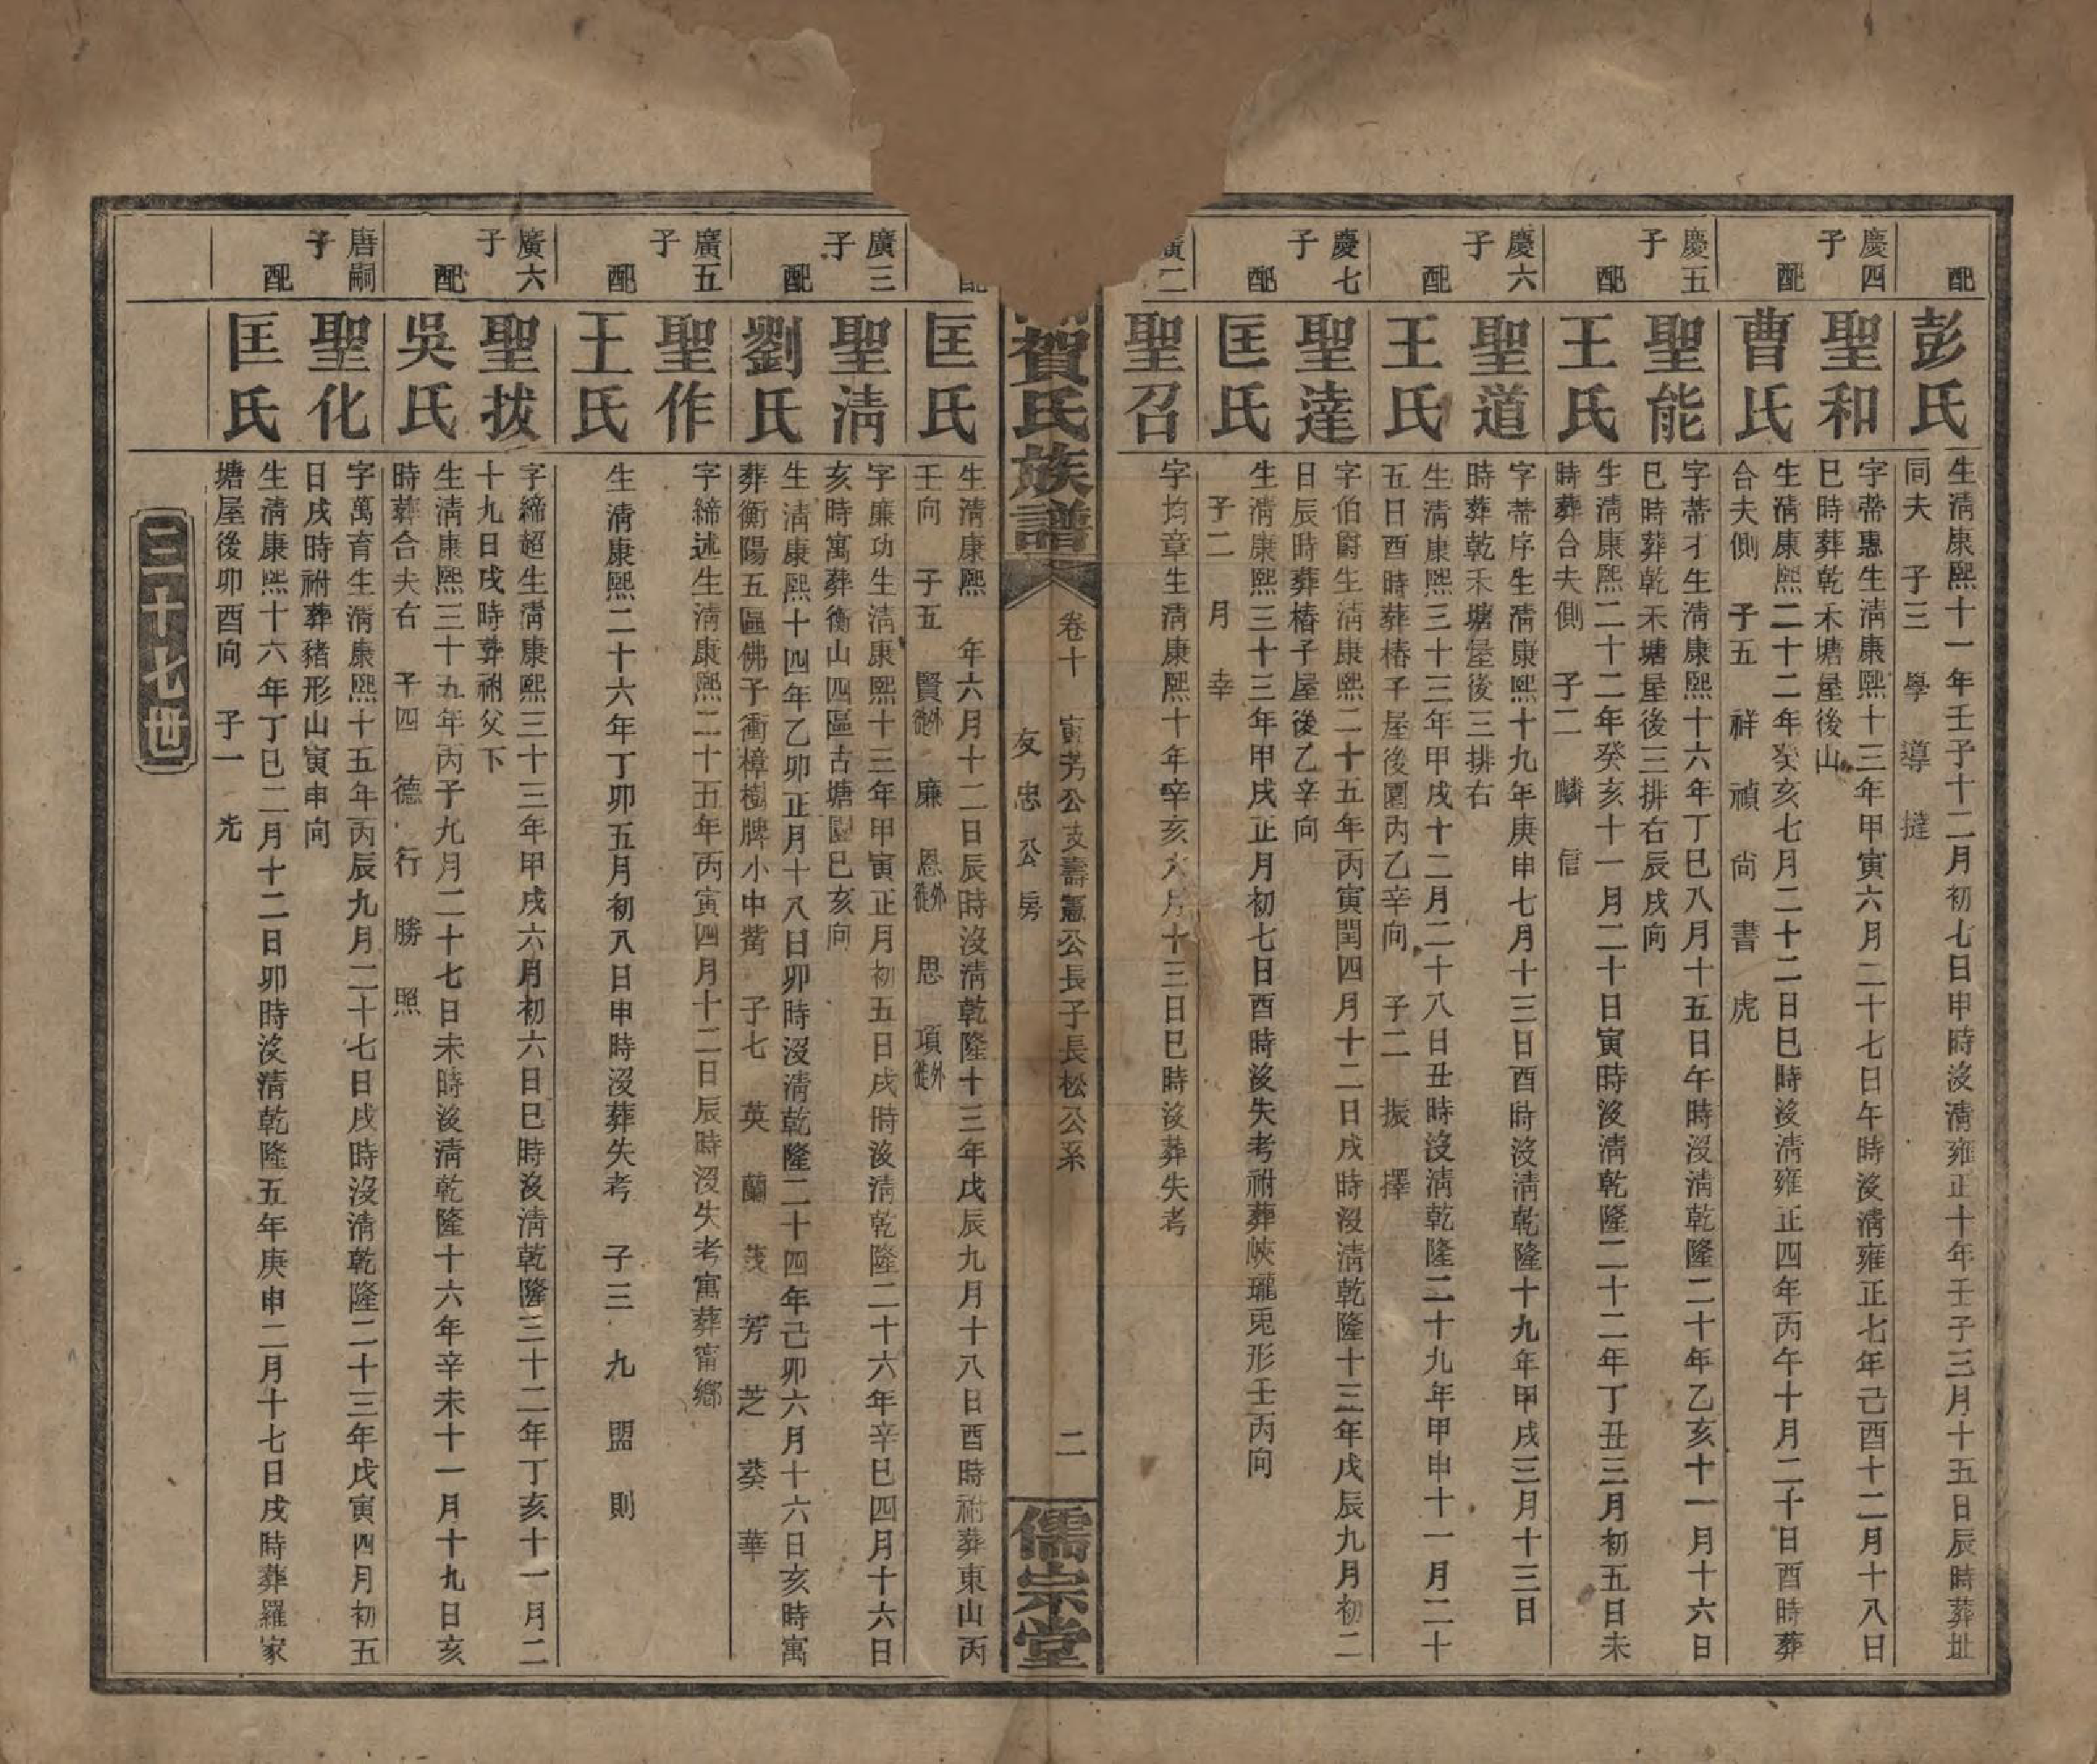 配
彭氏
生淸康熙十一年壬子十二月初七日申時沒淸雍正十年壬子三月十五日辰時葬址
同夫　子三　學　導　撻
慶四子
聖和
字蒂惠生淸康熙十三年甲寅六月二十七日午時沒淸雍正七年己酉十二月十八日
巳時葬乾禾塘屋後山
配
曹氏
生淸康熙二十二年癸亥七月二十二日巳時沒淸雍正四年丙午十月二十日酉時葬
合夫側　子五　祥　禎　尙　書　虎
慶五子
聖能
字蒂才生淸康熙十六年丁巳八月十五日午時沒淸乾隆二十年乙亥十一月十六日
巳時葬乾禾塘屋後三排右辰戌向
配
王氏
生淸康熙二十二年癸亥十一月二十日寅時沒淸乾隆二十二年丁丑三月初五日未
時葬合夫側　子二　麟　信
慶六子
聖道
字蒂序生淸康熙十九年庚申七月十三日酉時沒淸乾隆十九年甲戌三月十三日
時葬乾禾塘屋後三排右
配
王氏
生淸康熙三十三年甲戌十二月二十八日丑時沒淸乾隆二十九年甲申十一月二十
五日酉時葬椿子屋後園內乙辛向　子二　振　擇
慶七子
聖達
字伯爵生淸康熙二十五年丙寅閏四月十二日戌時沒淸乾隆十三年戊辰九月初二
日辰時葬椿子屋後乙辛向
配
匡氏
生淸康熙三十三年甲戌正月初七日酉時沒失考祔葬峽瓏兎形壬丙向
子二　月　幸
廣二
聖召
字均章生淸康熙十年辛亥六月十三日巳時沒葬失考
賀氏族譜
卷十　寅芳公支壽憲公長子長松公系　二
友忠公房
儒宗堂
配
匡氏
生淸康熙　年六月十二日辰時沒淸乾隆十三年戊辰九月十八日酉時祔葬東山丙
壬向　子五　賢外徙　廉　恩外徙　思　項外徙
廣三子
聖淸
字廉功生淸康熙十三年甲寅正月初五日戌時沒淸乾隆二十六年辛巳四月十六日
亥時寓葬衡山四區古塘園巳亥向
配
劉氏
生淸康熙十四年乙卯正月十八日卯時沒淸乾隆二十四年己卯六月十六日亥時寓
葬衡陽五區佛子衝樟樹牌小中嘴　子七　英　蘭　茂　芳　芝　葵　華
廣五子
聖作
字締述生淸康熙二十五年丙寅四月十二日辰時沒失考寓葬甯鄉
配
王氏
生淸康熙二十六年丁卯五月初八日申時沒葬失考　子三　九　盟　則
廣六子
聖拔
字締超生淸康熙三十三年甲戌六月初六日巳時沒淸乾隆三十二年丁亥十一月二
十九日戌時葬祔父下
配
吳氏
生淸康熙三十五年丙子九月二十七日未時沒淸乾隆十六年辛未十一月十九日亥
時葬合夫右　子四　德　行　勝　照
唐嗣子
聖化
字萬育生淸康熙十五年丙辰九月二十七日戌時沒淸乾隆二十三年戊寅四月初五
日戌時祔葬豬形山寅申向
配
匡氏
生淸康熙十六年丁巳二月十二日卯時沒淸乾隆五年庚申二月十七日戌時葬羅家
塘屋後卯酉向　子一　光
三十七世